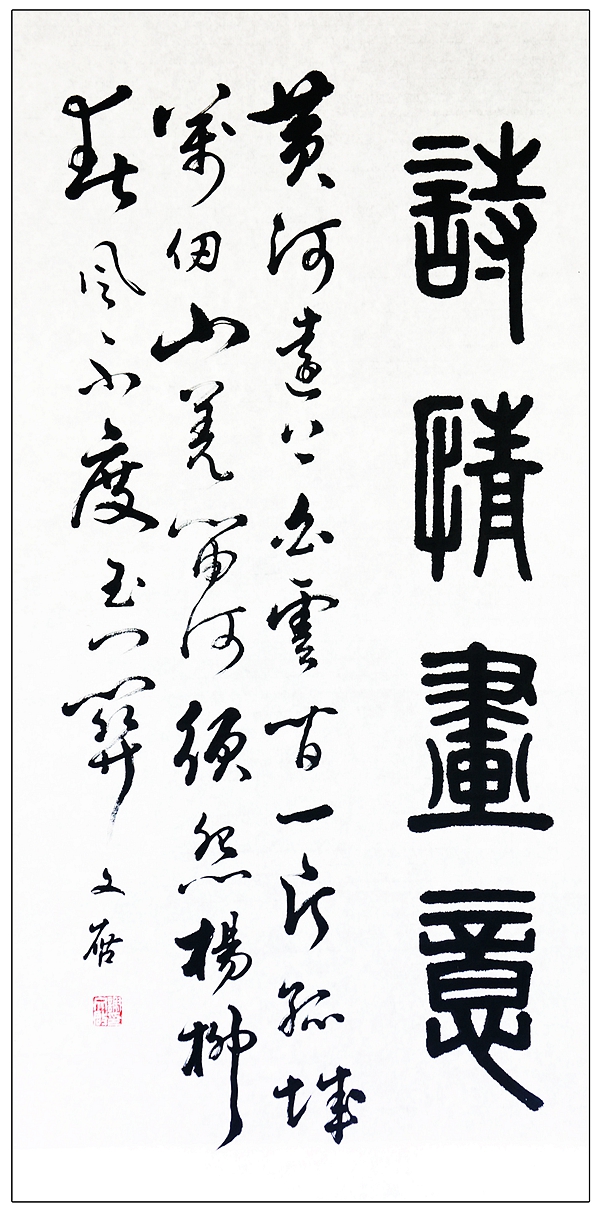 詩情畫意
黃河遠上白雲間一片孤城
萬仞山羌笛何須怨楊柳
春風不度玉門關
文